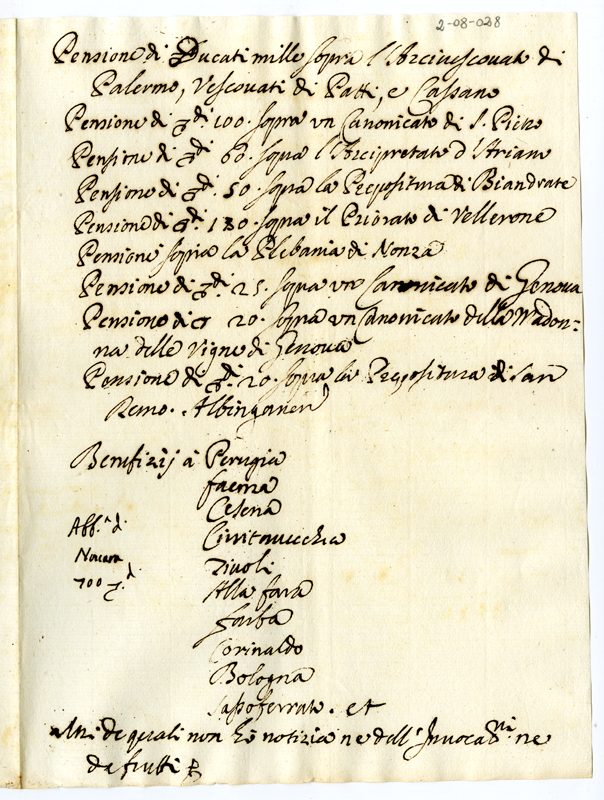 2-08-028
Pensione di Ducati mille sopra l'Arciuescouato di
Palermo, Vescouati di Patti, e Cassano
Pensione di 100. sopra vn Canonicato di S. Pietro
Pensione di 60. sopra l'Arcipretato d'Ariano
Pensione di 50. sopra la Prepositura di Biandrate
Pensione di 130. sopra il Priorato di Vellerone
Pensione sopra la Plebania di Nonza
Pensione di 25. sopra vn Canonicato di Genoua
Pensione di 20. sopra vn Canonicato della Madon:
na delle Vigne di Genoua
Pensione di 20. sopra la Prepositura di San
Remo. Albinganen
Benifizij à Perugia
faenza
Cesena
Ciuitauecchia
Tiuoli
Alla fara
farba
Corinaldo
Bologna
Sassoferrato. et
Aff.ª d.
Nouara
700
altri de quali non hò notizia ne dell' Inuocaz.ni ne
de frutti